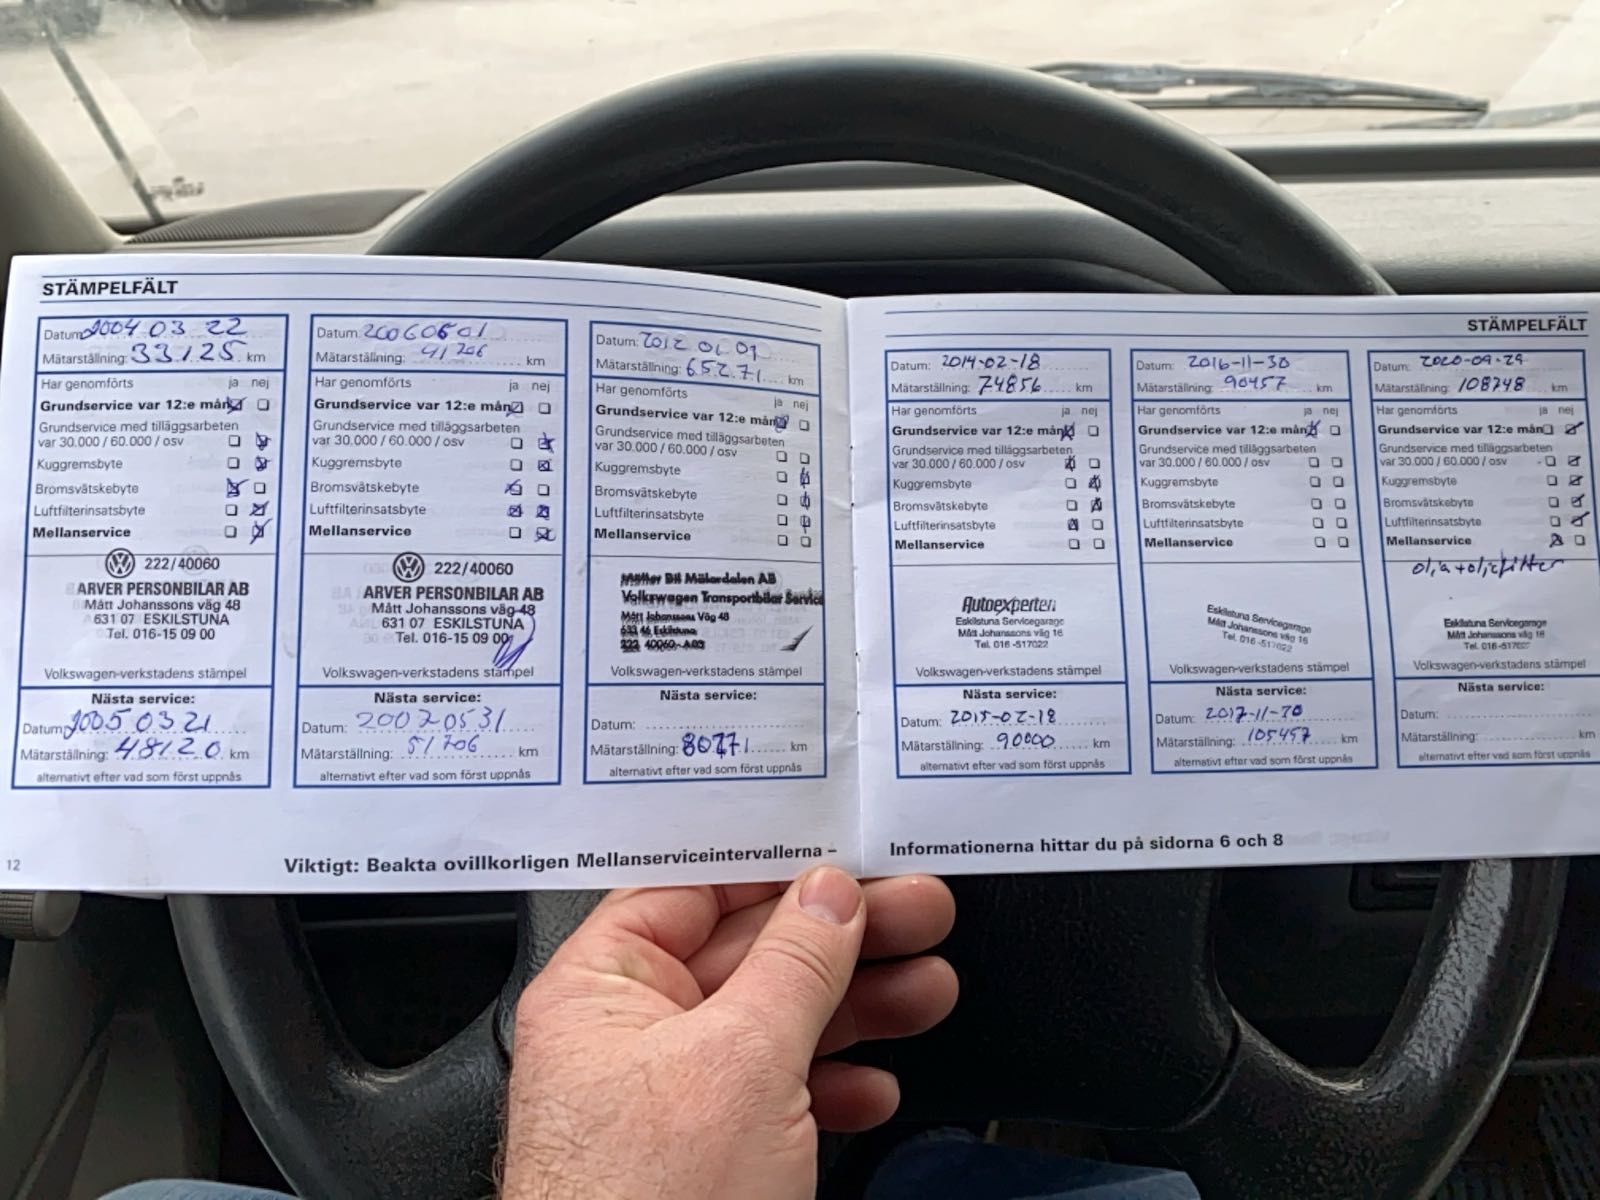 STÄMPELFÄLT
Datum: 2004 03 22
Mätarställning: 33125 km
Har genomförts ja nej
Grundservice var 12:e mån
Grundservice med tilläggsarbeten
var 30.000 / 60.000 / osv
Kuggremsbyte
Bromsvätskebyte
Luftfilterinsatsbyte
Mellanservice
222/40060
ARVER PERSONBILAR AB
Mått Johanssons väg 48
631 07 ESKILSTUNA
Tel. 016-15 09 00
Volkswagen-verkstadens stämpel
Nästa service:
Datum: 2005 03 21
Mätarställning: 48120 km
alternativt efter vad som först uppnås
Datum: 20060601
Mätarställning: 41706 km
Har genomförts ja nej
Grundservice var 12:e mån
Grundservice med tilläggsarbeten
var 30.000 / 60.000 / osv
Kuggremsbyte
Bromsvätskebyte
Luftfilterinsatsbyte
Mellanservice
222/40060
ARVER PERSONBILAR AB
Mått Johanssons väg 48
631 07 ESKILSTUNA
Tel. 016-15 09 00
Volkswagen-verkstadens stämpel
Nästa service:
Datum: 20070531
Mätarställning: 51706 km
alternativt efter vad som först uppnås
Datum: 2012 01 09
Mätarställning: 65271 km
Har genomförts ja nej
Grundservice var 12:e mån
Grundservice med tilläggsarbeten
var 30.000 / 60.000 / osv
Kuggremsbyte
Bromsvätskebyte
Luftfilterinsatsbyte
Mellanservice
Möller Bil Mälardalen AB
Volkswagen Transportbilar Service
Mått Johanssons Väg 48
633 46 Eskilstuna
222 40060 - A03
Volkswagen-verkstadens stämpel
Nästa service:
Datum:
Mätarställning: 80271 km
alternativt efter vad som först uppnås
12
Viktigt: Beakta ovillkorligen Mellanserviceintervallerna –
STÄMPELFÄLT
Datum: 2014-02-18
Mätarställning: 74856 km
Har genomförts ja nej
Grundservice var 12:e mån
Grundservice med tilläggsarbeten
var 30.000 / 60.000 / osv
Kuggremsbyte
Bromsvätskebyte
Luftfilterinsatsbyte
Mellanservice
Autoexperten
Eskilstuna Servicegarage
Mått Johanssons väg 16
Tel. 016 -517022
Volkswagen-verkstadens stämpel
Nästa service:
Datum: 2015-02-18
Mätarställning: 90000 km
alternativt efter vad som först uppnås
Datum: 2016-11-30
Mätarställning: 90457 km
Har genomförts ja nej
Grundservice var 12:e mån
Grundservice med tilläggsarbeten
var 30.000 / 60.000 / osv
Kuggremsbyte
Bromsvätskebyte
Luftfilterinsatsbyte
Mellanservice
Eskilstuna Servicegarage
Mått Johanssons väg 16
Tel. 016 -517022
Volkswagen-verkstadens stämpel
Nästa service:
Datum: 2017-11-30
Mätarställning: 105457 km
alternativt efter vad som först uppnås
Datum: 2020-09-29
Mätarställning: 108748 km
Har genomförts ja nej
Grundservice var 12:e mån
Grundservice med tilläggsarbeten
var 30.000 / 60.000 / osv
Kuggremsbyte
Bromsvätskebyte
Luftfilterinsatsbyte
Mellanservice
olja+oljefilter
Eskilstuna Servicegarage
Mått Johanssons väg 16
Tel. 016 -517022
Volkswagen-verkstadens stämpel
Nästa service:
Datum:
Mätarställning: km
alternativt efter vad som först uppnås
Informationerna hittar du på sidorna 6 och 8